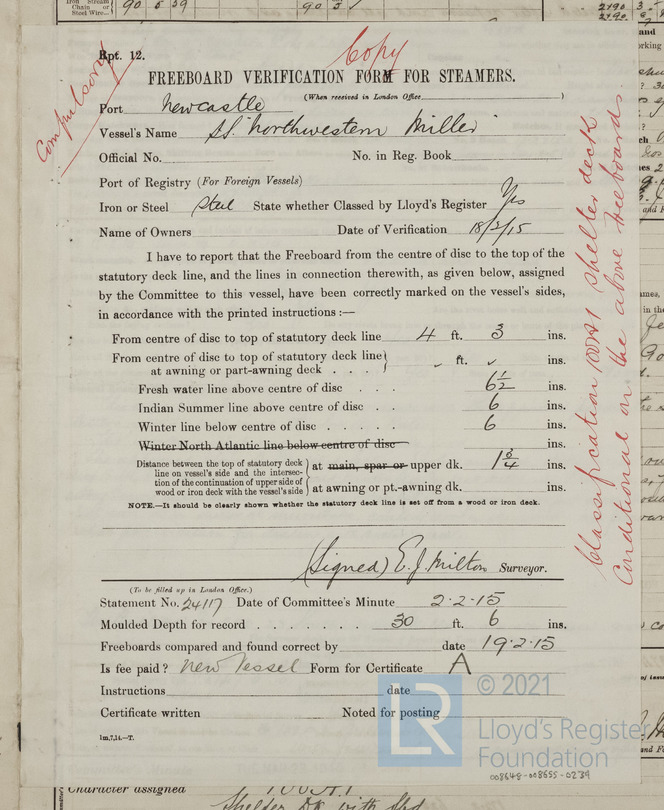 Iron Stream
Chain or
Steel Wire...
90 5 39
90
2190
2190
Rpt. 12.
Copy
Compulsory
FREEBOARD VERIFICATION FORM FOR STEAMERS.
(When received in London Office )
Port Newcastle
Vessel's Name S.S. "Northwestern Miller"
Official No. No. in Reg. Book
Port of Registry (For Foreign Vessels)
Iron or Steel Steel State whether Classed by Lloyd's Register Yes
Name of Owners Date of Verification 18/2/15
I have to report that the Freeboard from the centre of disc to the top of the
statutory deck line, and the lines in connection therewith, as given below, assigned
by the Committee to this vessel, have been correctly marked on the vessel's sides,
in accordance with the printed instructions :—
From centre of disc to top of statutory deck line 4 ft. 3 ins.
From centre of disc to top of statutory deck line
at awning or part-awning deck . . . ft. ins.
Fresh water line above centre of disc . . . 6 1/2 ins.
Indian Summer line above centre of disc . . 6 ins.
Winter line below centre of disc . . . . . 6 ins.
Winter North Atlantic line below centre of disc ins.
Distance between the top of statutory deck
line on vessel's side and the intersec-
tion of the continuation of upper side of
wood or iron deck with the vessel's side
at main, spar or upper dk. 1 3/4 ins.
at awning or pt.-awning dk. ins.
NOTE.—It should be clearly shown whether the statutory deck line is set off from a wood or iron deck.
(Signed) E. J. Milton Surveyor.
(To be filled up in London Office.)
Statement No. 24117 Date of Committee's Minute 2.2.15
Moulded Depth for record . . . . . . . 30 ft. 6 ins.
Freeboards compared and found correct by date 19.2.15
Is fee paid? New Vessel Form for Certificate A
Instructions date
Certificate written Noted for posting
1m,7,14.—T.
Classification 100A1 Shelter deck
Conditional on the above freeboards.
LR
© 2021
Lloyd's Register
Foundation
008648-008655-0239
Character assigned 100A1
Shelter Dk with fbd